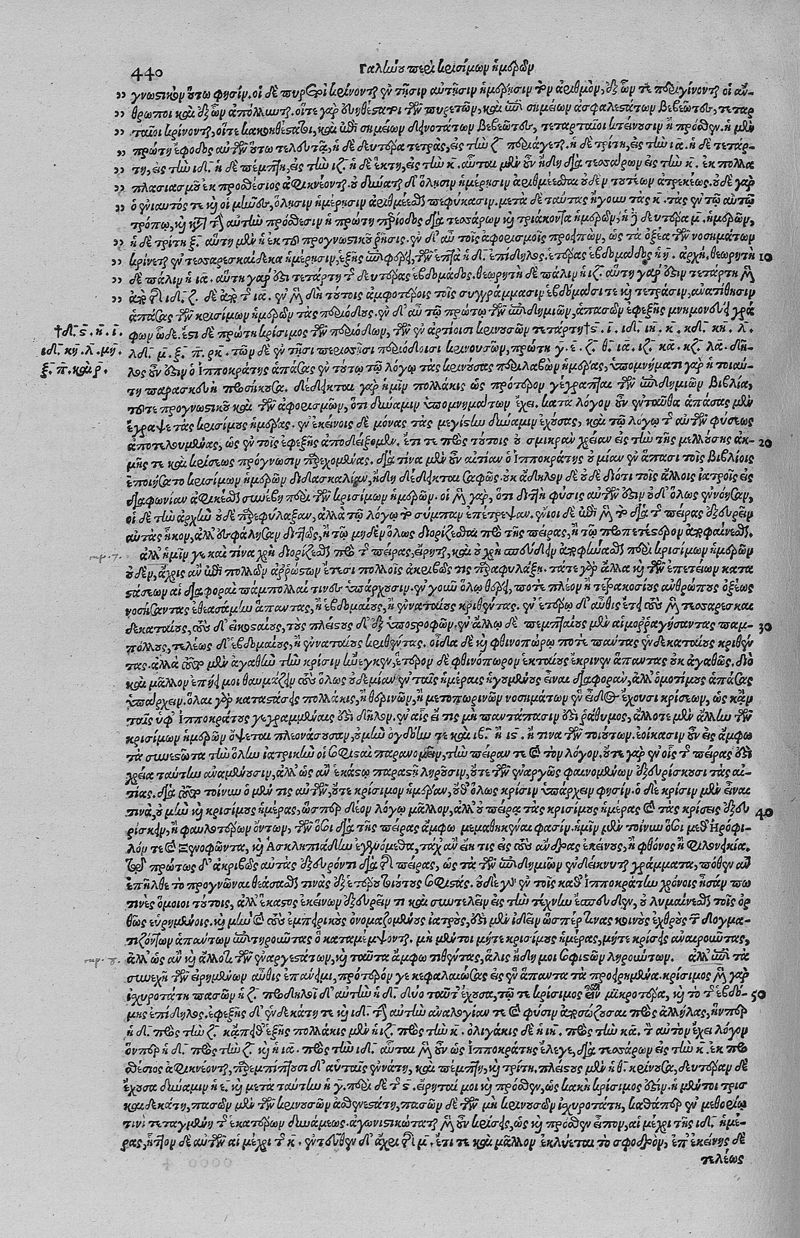 440 Γαληνοῦ περὶ κρισίμων ἡμερῶν
γνωστικῷ οὕτω φησίν. οἱ δὲ πυρετοὶ κρίνονται ἐν τῇσιν αὐτῇσιν ἡμέρῃσιν τὸν ἀριθμὸν, ἐξ ὧν τε περιγίνονται οἱ ἄν-
θρωποι καὶ ἐξ ὧν ἀπόλλυνται. οἵτε γὰρ εὐηθέστατοι τῶν πυρετῶν, καὶ ἐπὶ σημείων ἀσφαλεστάτων βεβῶτες, τεταρ
ταῖοι κρίνονται, οἵτε κακοηθέστατοι, καὶ ἐπὶ σημείων δεινοτάτων βεβῶτες, τεταρταῖοι κτείνουσιν ἢ πρόσθεν. ἡ μὲν
πρώτη ἔφοδος αὐτῶν οὕτω τελευτᾷ, ἡ δὲ δευτέρα τετρὰς, ἐς τὴν ζ. περιάγεται. ἡ δὲ τρίτη, ἐς τὴν ια. ἡ δὲ τετάρ-
τη, ἐς τὴν ιδ. ἡ δὲ πέμπτη, ἐς τὴν ιζ. ἡ δὲ ἕκτη, ἐς τὴν κ. αὗται μὲν ἐν ἤδη διὰ τεσσάρων ἐς τὴν κ. ἐκ
πλασιασμοῦ ἐκ προσθέσιος ἀφικνέονται. οὐ δύναται δ' ὅλῃσιν ἡμέρῃσιν ἀριθμέεσθαι οὐδὲν τουτέων ἀτρεκέως. οὐδὲ γὰρ
ὁ ἐνιαυτός τε καὶ οἱ μῆνες, ὅλῃσιν ἡμέρῃσιν ἀριθμέεσθαι πεφύκασιν. μετὰ δὲ ταύτας τὰς κ. τὰς ἐν τῷ αὐτῷ
τρόπῳ, καὶ κατὰ τὴν αὐτὴν πρόσθεσιν ἡ πρώτη περίοδος διὰ τεσσάρων καὶ τριάκοντα ἡμερῶν, ἡ δευτέρα μ. ἡμερῶν,
ἡ δὲ τρίτη ξ. αὕτη μὲν ἡ ἐκ τοῦ προγνωστικοῦ ῥῆσις. ἐν δ' αὖ τοῖς ἀφορισμοῖς προειπὼν, ὡς τὰ ὀξέα τῶν νοσημάτων
κρίνεται ἐν τεσσαρεσκαίδεκα ἡμέρῃσιν, ἑξῆς ἐπιφέρει, τῶν ἑπτὰ ἡ δ. ἐπίδηλος. ἑτέρας ἑβδομάδος ἡ η. ἀρχὴ, θεωρητὴ 10
δὲ πάλιν ἡ ια. αὕτη γάρ ἐστι τετάρτη τῆς δευτέρας ἑβδομάδος. θεωρητὴ δὲ πάλιν ἡ ιζ. αὕτη γάρ ἐστι τετάρτη μὲν
ἀπὸ τῆς ιδ. ζ. δὲ ἀπὸ τῆς ια. ἐν μὲν δὴ τούτοις ἀμφοτέροις τοῖς συγγράμμασιν ἑβδομάσι τε καὶ τετράσιν, ἀνατίθησιν
ἁπάσας τῶν κρισίμων ἡμερῶν τὰς περιόδους. ἐν δ' αὖ τῷ πρώτῳ τῶν ἐπιδημιῶν, ἁπασῶν ἐφεξῆς μνημονεύει γρά
†δ. ϛ. η. ι. φων ὧδε. ἔστι δὲ πρώτη κρίσιμος τῶν περιόδων, τῶν ἐν ἀρτίοισι κρινουσῶν τετάρτη†ϛ. ι. ιδ. ιη. κ. κδ. κη. λ.
ιδ. κη. λ. μη. λδ. μ. ξ. π. ρκ. τῶν δὲ ἐν τῇσι περισσῇσι περιόδοισι κρινουσῶν, πρώτη γ. ε. ζ. θ. ια. ιζ. κα. κζ. λα. δῆ-
ξ. π. καὶ ρ. λος ἐν ὁ Ἱπποκράτης ἁπάσας ἐν τούτῳ τῷ λόγῳ τὰς κρινούσας περιλαβὼν ἡμέρας, ὑπομνήματι γὰρ ἡ τοιαύ-
τη παρασκευὴ προσήκουσα. δέδεικται γὰρ ἡμῖν πολλάκις ὡς πρότερον γέγραπται τῶν ἐπιδημιῶν βιβλία,
τοῦτε προγνωστικοῦ καὶ τῶν ἀφορισμῶν, ὅτι δύναμιν ὑπομνημάτων ἔχει. κατὰ λόγον ἐνταῦθα ἁπάσας μὲν
ἔγραψε τὰς κρισίμους ἡμέρας. ἐν ἐκείνοις δὲ μόνας τὰς μεγίστην δύναμιν ἐχούσας, καὶ τῷ λόγῳ τῆς αὐτῶν φύσεως
ἀποτελουμένας, ὡς ἐν τοῖς ἐφεξῆς ἀποδείξομεν. ἔτι τε πρὸς τούτοις οὐ σμικρὰν χρείαν εἰς τὴν τῆς μελλούσης ἀκ- 20
μῆς τε καὶ κρίσεως πρόγνωσιν παρεχομένας. διὰ τίνα μὲν ἐν αἰτίαν ὁ Ἱπποκράτης οὐ μίαν ἐν ἅπασι τοῖς βιβλίοις
ἐποιήσατο κρισίμων ἡμερῶν διδασκαλίαν, ἤδη δέδεικται σαφῶς. οὐκ ἄδηλον δὲ οὐδὲ διότι τοῖς ἄλλοις ἰατροῖς εἰς
διαφωνίαν ἀφικέσθαι συνέβη περὶ τῶν κρισίμων ἡμερῶν. οἱ μὲν γὰρ, ὅτι φύσις αὐτῶν ἐστιν οὐδ' ὅλως ἐνενόησαν,
οἱ δὲ τὴν ἀρχὴν οὐδὲ παρεφύλαξαν, ἀλλὰ τῷ λόγῳ τὸ σύμπαν ἐπέτρεψαν. ἔνιοι δὲ ἐπὶ μὲν τὸ διὰ τῆς πείρας ἐξευρεῖν
αὐτὰς ἧκον, ἀλλ' ἐσφάλησαν, ἢ τῷ μηδὲν ὅλως διορίζεσθαι πρὸ τῆς πείρας, ἢ τῷ πρὸ τοῦ προσήκοντος
κεφ. 7. ἀλλ' ἡμῖν γε καὶ τίνα χρὴ διορίζεσθαι πρὸ τῆς πείρας, εἴρηται, καὶ οὐ χρὴ σπεύδειν ἀποφαίνεσθαι περὶ κρισίμων ἡμερῶν
οὐδὲν, ἄχρις ἂν ἐπὶ πολλῶν ἀρρώστων ἔτεσι πολλοῖς ἀκριβῶς τις παραφυλάξῃ. τάς τε γὰρ ἄλλας καὶ τῶν ἐπετείων κατα
στάσεων αἱ διαφοραὶ πάμπολλαί τινες ὑπάρχουσιν. ἐν γοῦν ὅλῳ θέρει, ποτὲ πλέον ἢ τετρακοσίους ἀνθρώπους ὀξέως
νοσήσαντας ἐθεασάμην ἅπαντας, ἢ ἑβδομαίους, ἢ ἐναταίους κριθέντας. ἐν ἑτέρῳ δ' αὖθις ἔτει τοὺς μὲν τεσσαρεσκαι
δεκαταίους, τοὺς δ' εἰκοσταίους, τοὺς πλείστους δ' ἐξ ὑποστροφῶν. ἐν ἄλλῳ δὲ πεμπταίους μὲν αἱμορραγήσαντας παμ- 30
πόλλους, τελέως δ' ἑβδομαίους, ἢ ἐναταίους κριθέντας. οἶδα δὲ καὶ φθινοπώρῳ ποτὲ πάντας ἑνδεκαταίους κριθέν
τας. ἀλλὰ τοῦτο μὲν ἀγαθὴν τὴν κρίσιν ἤνεγκεν, ἕτερον δὲ φθινόπωρον ἑκταίους ἔκρινεν ἅπαντας οὐκ ἀγαθῶς, διὸ
καὶ μᾶλλον ἐπῄει μοι θαυμάζειν τοὺς ὅλως οὐδεμίαν ἐν ταῖς ἡμέραις ἡγουμένους εἶναι διαφορὰν, ἀλλ' ὁμοτίμους ἁπάσας
ὑπάρχειν. ὅλαι γὰρ καταστάσεις πολλάκις, ἢ θερινῶν, ἢ μετοπωρινῶν νοσημάτων ἓν εἶδος ἔχουσι κρίσεων, ὡς κἂν
ταῖς ὑφ' Ἱπποκράτους γεγραμμέναις ἐστὶ δῆλον. ἐν αἷς εἰ τις μὴ παντάπασιν ἐστὶ ῥάθυμος, ἄλλοτε μὲν ἄλλην τῶν
κρισίμων ἡμερῶν ὄψεται πλεονάσασαν, οὐ μὴν ὀγδόην τε καὶ ιβ. ἢ ιϛ. ἤ τινα τῶν τοιούτων. ἐοίκασιν ἐν εἰς ἄμφω
τὰ συνεστῶτα τὴν ὅλην ἰατρικὴν οἱ σοφισταὶ παρανομεῖν, τὴν πεῖράν τε καὶ τὸν λόγον. οὔτε γὰρ ἐν οἷς τῆς πείρας ἐστὶ
χρεία ταύτην ἀναμένουσιν, ἀλλ' ὡς ἂν ἑκάστῳ παραστῇ ληροῦσιν, οὔτε τῶν ἐναργῶς φαινομένων ἐξευρίσκουσι τὰς αἰ-
τίας. διὰ τοῦτο τοίνυν ὁ μέν τις αὐτῶν, οὔτε κρίσιμον ἡμέραν, οὐθ' ὅλως κρίσιν ὑπάρχειν φησίν. ὁ δὲ κρίσιν μὲν εἶναι
τινὰ, οὐ μὴν καὶ κρισίμους ἡμέρας, ὥσπερ δέον λόγῳ μᾶλλον, ἀλλ' οὐ πείρᾳ τὰς κρισίμους ἡμέρας καὶ τὰς κρίσεις ἐξευ 40
ρίσκειν, ἢ φαυλοτέρων ὄντων, τῶν ὅσοι διὰ τῆς πείρας ἄμφω μεμαθηκέναι φασίν. ἡμῖν μὲν τοίνυν ὅσοι μεθ' Ἡρόφι-
λόν τε καὶ Ξενοφῶντα, καὶ Ἀσκληπιάδην ἐγενόμεθα, τάχ' ἂν εἴη τις εἰς τοὺς ἄνδρας ἐκείνους, ἢ φθόνος ἢ φιλονεικία.
τῷ πρώτως δ' ἀκριβῶς αὐτὰς ἐξευρόντι διὰ τῆς πείρας, ὡς τὰ τῶν ἐπιδημιῶν ἐνδείκνυται γράμματα, πόθεν ἂν
ἐπῆλθε τὸ προγνῶναι θεάσασθαι τινὰς ἐξ ἑτέρου βιότους σοφιστάς. οὐδὲ γὰρ ἐν τοῖς καθ' Ἱπποκράτην χρόνοις ἦσάν πω
τινὲς ὅμοιοι τούτοις, ἀλλ' ἕκαστος ἐκείνων ἐξευρεῖν τι καὶ συντελεῖν εἰς τὴν τέχνην ἔσπευδεν, οὐ λυμαίνεσθαι τοῖς ὀρ
θῶς εὑρημένοις. καὶ μὴν καὶ τοὺς ἐμπειρικοὺς ὀνομαζομένους ἰατροὺς, ἐστὶ μὲν ἰδεῖν ὥσπερ τινὰς κοινοὺς ἐχθροὺς τῶν δογμα-
τιζόντων ἁπάντων ἐπιτηροῦντας ὃ καταμέμψονται. μὴ μέντοι μήτε κρισίμους ἡμέρας, μήτε κρίσεις ἀναιροῦντας,
κεφ. 8. ἀλλ' ὡς ἂν καὶ ἄλλο τι τῶν ἐναργεστάτων, καὶ ταῦτα ἄμφω τιθέντας, ἅλις ἤδη μοι σοφιστῶν ληρούντων. ἀλλ' ἐπὶ τὰ
συνεχῆ τῶν εἰρημένων αὖθις ἐπάνειμι, πρότερόν γε κεφαλαιώσας εἰς ἓν ἅπαντα τὰ προειρημένα. κρίσιμος μὲν γὰρ
ἰσχυροτάτη πασῶν ἡ ζ. προδηλοῖ δ' αὐτὴν ἡ δ. δύο ταῦτ' ἔχουσα, τῷ τε κρίσιμος εἶναι μικροτέρα, καὶ τὸ τῆς ἑβδό- 50
μης ἐπίδηλος. ἐφεξῆς δ' ἑνδεκάτη τε καὶ ιδ. τὴν αὐτὴν ἀναλογίαν τε καὶ φύσιν διασώζεσθαι πρὸς ἀλλήλας, ἥνπερ
ἡ δ. πρὸς τὴν ζ. κἄπειθ' ἑξῆς πολλάκις μὲν ἡ ιζ. πρὸς τὴν κ. ὀλιγάκις δὲ ἡ ιη. πρὸς τὴν κα. τὸν αὐτὸν ἔχει λόγον
ὅνπερ ἡ δ. πρὸς τὴν ζ. καὶ ἡ ια. πρὸς τὴν ιδ. αὗται μὲν ἐν ὡς Ἱπποκράτης ἔλεγε, διὰ τεσσάρων ἐς τὴν κ. ἐκ προ
θέσιος ἀφικνέονται, παρεμπίπτουσι δ' αὐταῖς ἐνάτη, καὶ πέμπτη, καὶ τρίτη. πλείστους μὲν ἡ θ. κρίνουσα, δευτέραν δὲ
ἔχουσα δύναμιν ἡ ε. καὶ μετὰ ταύτην ἡ γ. περὶ δὲ τῆς ϛ. εἴρηταί μοι καὶ πρόσθεν, ὡς κακὴ κρίσιμός ἐστιν. ἡ μέντοι τρισ
καιδεκάτη, πασῶν μὲν τῶν κρινουσῶν ἀσθενεστάτη, πασῶν δὲ τῶν μὴ κρινουσῶν ἰσχυροτάτη, καθάπερ ἐν μεθορίῳ
τινὶ τεταγμένη τῆς ἑκατέρων δυνάμεως. ἀγωνιστικώταται μὲν ἐν κρίσεις, ὡς καὶ πρόσθεν εἶπον, αἱ μέχρι τῆς ιδ. ἡμέ-
ρας, ἧττον δὲ αὐτῶν αἱ μέχρι τῆς κ. ἐντεῦθεν δ' ἄχρι τῆς μ. ἔτι τε καὶ μᾶλλον ἐκλύεται τὸ σφοδρὸν, ἐπ' ἐκείνης δὲ
τελέως